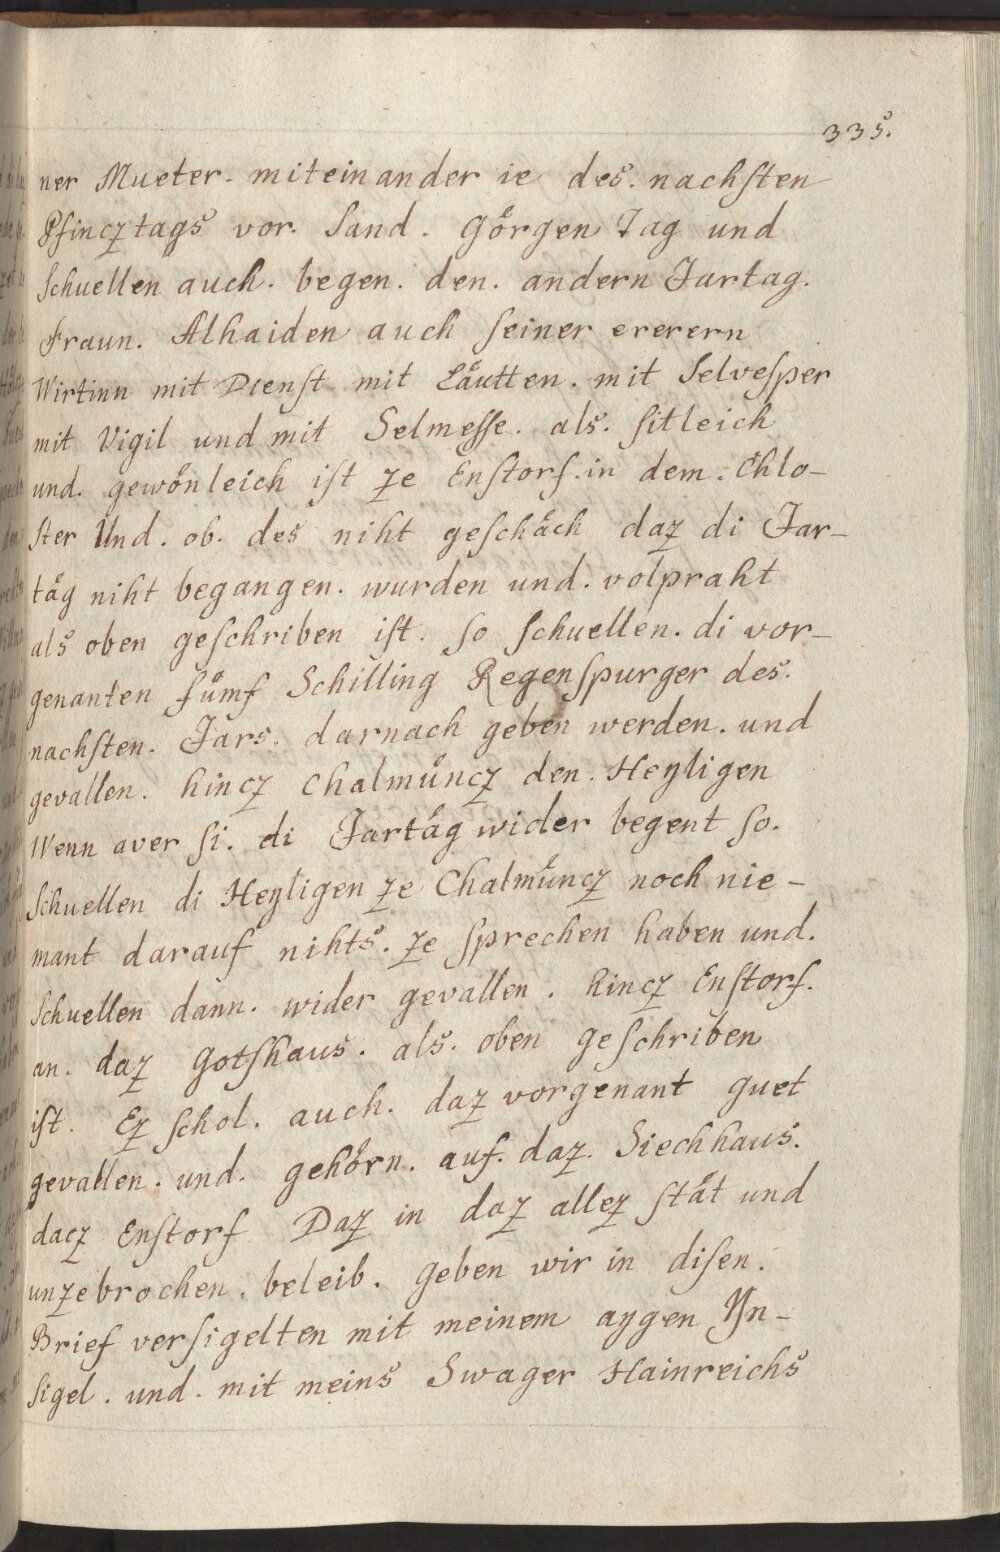 335.
ner Mueter. miteinander ie des. nachsten
Pfincztags vor. Sand. Görgen Tag und
Schuellen auch. begen. den. andern Jartag.
Fraun. Alhaiden auch seiner ererern
Wirtinn mit Dienst mit Läutten. mit Selvesper
mit Vigil und mit Selmesse. als. sitleich
und. gewönleich ist ze Enstorf. in dem. Chlo-
ster Und. ob. des niht geschäch daz di Jar-
täg niht begangen. wurden und. volpraht
als oben geschriben ist. so schuellen. di vor-
genanten fümf Schilling Regenspurger des.
nachsten. Jars. darnach geben werden. und
gevallen. hincz Chalmüncz den. Heyligen
Wenn aver si. di Jartäg wider begent so.
Schuellen di Heyligen ze Chalmüncz noch nie-
mant darauf nihts. ze sprechen haben und.
Schuellen dann. wider gevallen. hincz Enstorf.
an. daz Gotshaus. als. oben geschriben
ist. Ez schol. auch. daz vorgenant guet
gevallen. und. gehörn. auf. daz. Siechhaus.
dacz Enstorf Daz in daz allez stät und
unzebrochen. beleib. geben wir in disen.
Brief versigelten mit meinem aygen Yn-
sigel. und. mit meins Swager Hainreichs